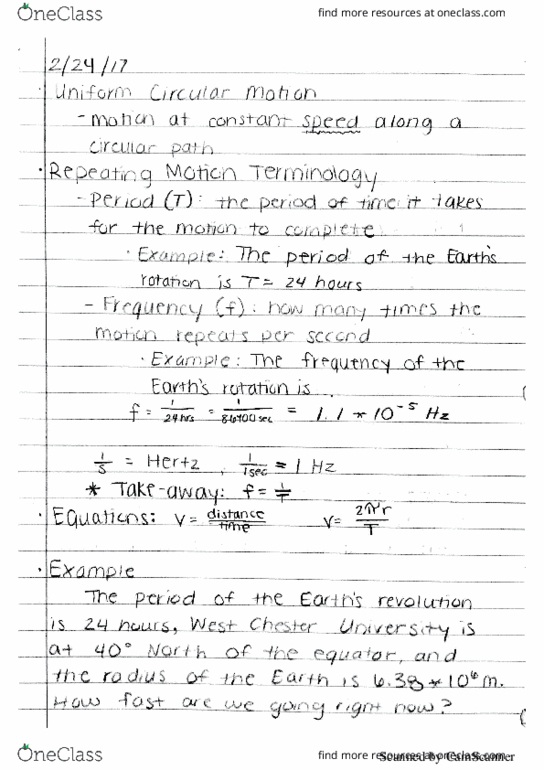 OneClass find more resources at oneclass.com
2/24/17
· Uniform Circular Motion
- motion at constant speed along a
circular path
· Repeating Motion Terminology
- Period (T): the period of time it takes
for the motion to complete
· Example: The period of the Earth's
rotation is T = 24 hours
- Frequency (f): how many times the
motion repeats per second
· Example: The frequency of the
Earth's rotation is...
f = 1/24hrs = 1/86400sec = 1.1 * 10⁻⁵ Hz
1/s = Hertz, 1/1sec = 1 Hz
* Take-away: f = 1/T
· Equations: V = distance/time V = 2πr/T
· Example
The period of the Earth's revolution
is 24 hours, West Chester University is
at 40° North of the equator, and
the radius of the Earth is 6.38 * 10⁶ m.
How fast are we going right now?
OneClass find more resources at oneclass.com
Scanned by CamScanner